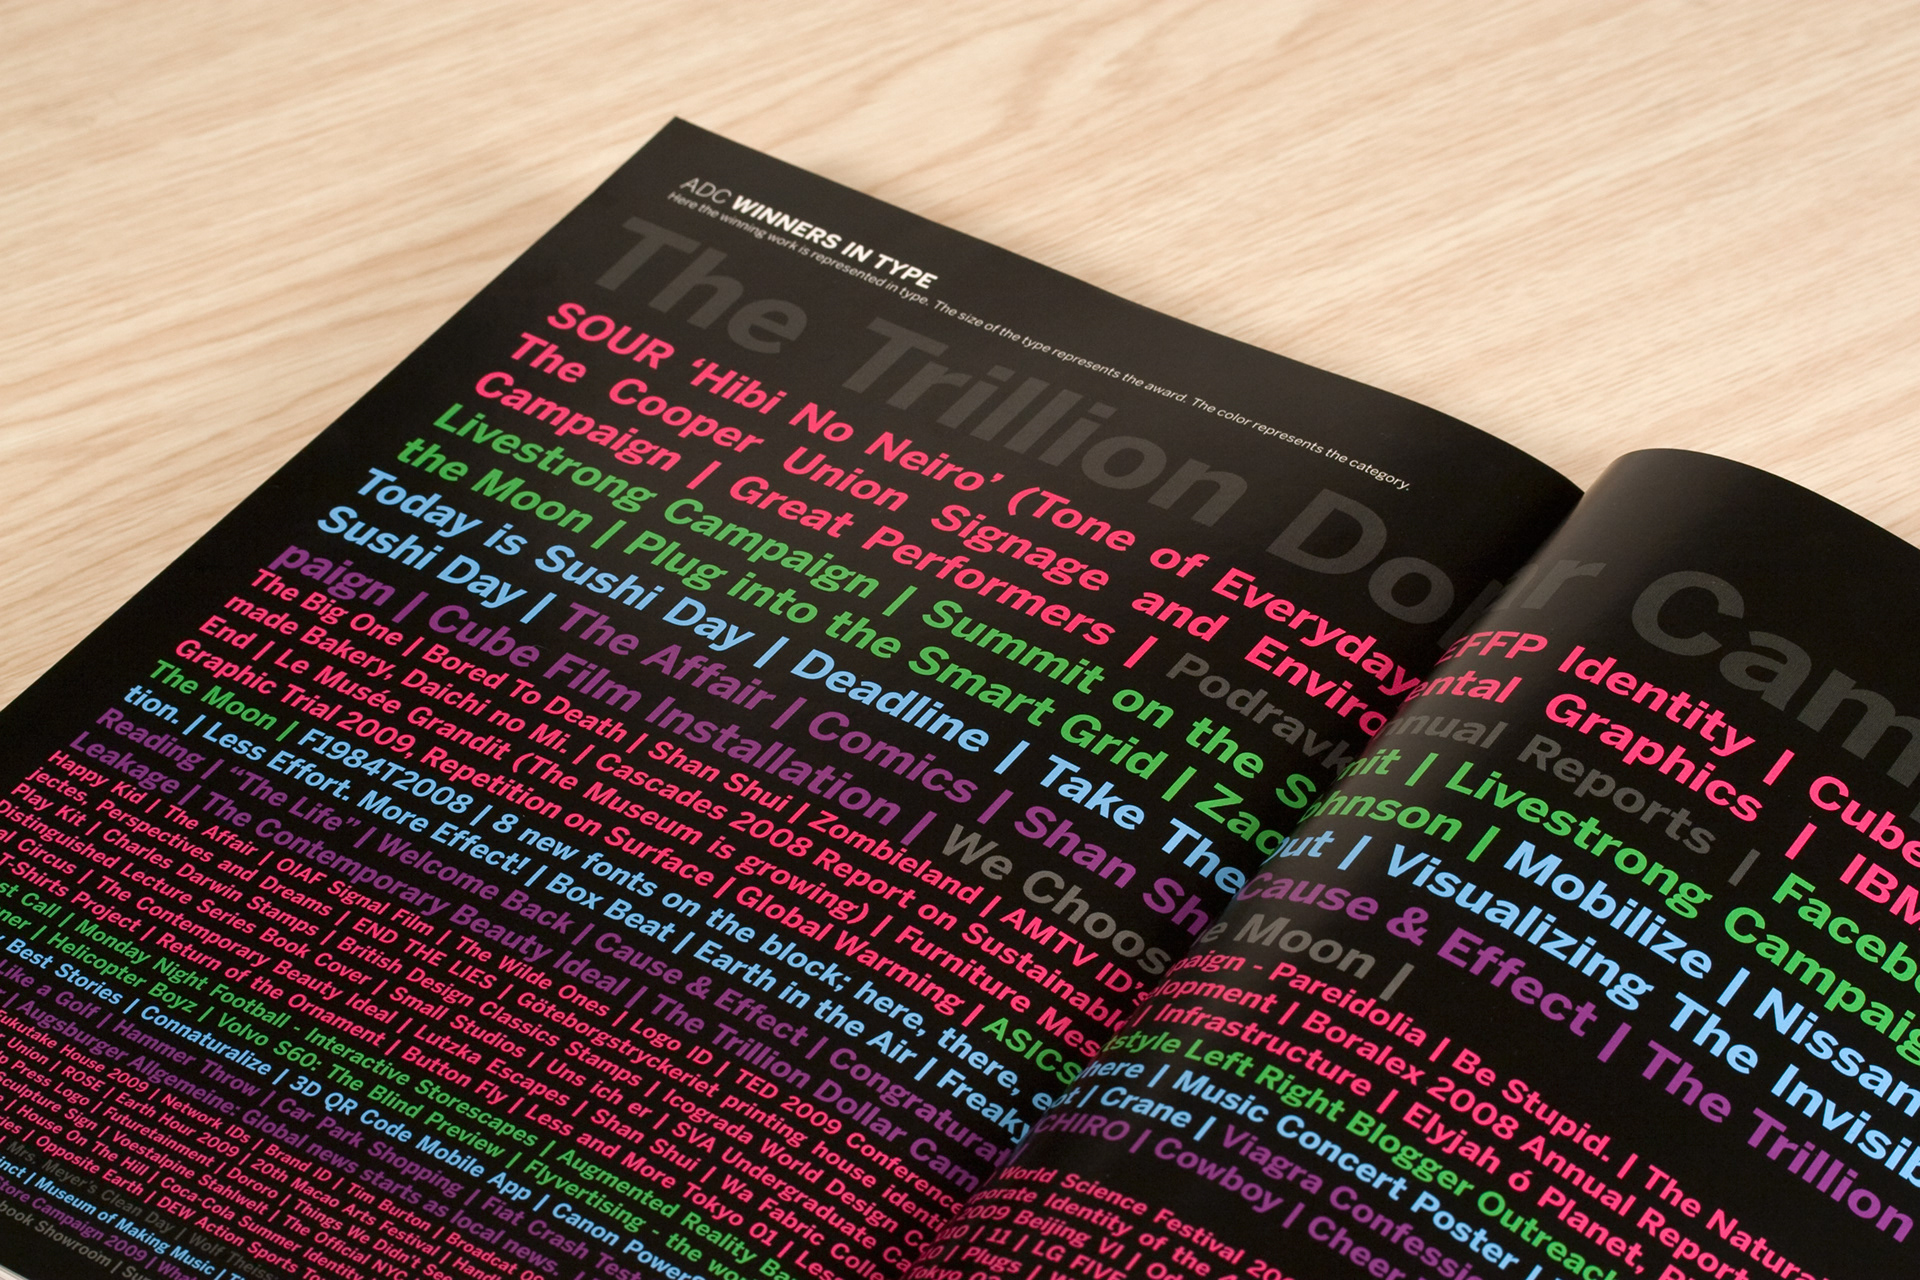 ADC WINNERS IN TYPE
Here the winning work is represented in type. The size of the type represents the award. The color represents the category.
The Trillion Do r Cam
SOUR ‘Hibi No Neiro’ (Tone of Everyday EFFP Identity | Cube
The Cooper Union Signage and Enviro ental Graphics | IBM
Campaign | Great Performers | Podravk nnual Reports | Faceb
Livestrong Campaign | Summit on the S mit | Livestrong Campaig
the Moon | Plug into the Smart Grid | Zac ohnson | Mobilize | Nissan
Today is Sushi Day | Deadline | Take The out | Visualizing The Invisib
Sushi Day | The Affair | Comics | Shan Sh Cause & Effect | The Trillion
paign | Cube Film Installation | We Choos e Moon |
The Big One | Bored To Death | Shan Shui | Zombieland | AMTV ID’s paign - Pareidolia | Be Stupid. | The Natur
made Bakery, Daichi no Mi. | Cascades 2008 Report on Sustainabl lopment | Boralex 2008 Annual Report
End | Le Musée Grandit (The Museum is growing) | Furniture Mes Infrastructure | Elyjah 6 Planet,
Graphic Trial 2009, Repetition on Surface | Global Warming | ASICS style Left Right Blogger Outreach
The Moon | F1984T2008 | 8 new fonts on the block; here, there, e here | Music Concert Poster |
tion. | Less Effort. More Effect! | Box Beat | Earth in the Air | Freaky | Crane | Viagra Confessi
Reading | “The Life” | Welcome Back | Cause & Effect | Congraturat CHIRO | Cowboy | Cheer
Leakage | The Contemporary Beauty Ideal | The Trillion Dollar Cam
Happy Kid | The Affair | OIAF Signal Film | The Wilde Ones | Logo ID | TED 2009 Conferenc World Science Festival
jectes, Perspectives and Dreams | END THE LIES | Göteborgstryckeriet printing house identi porate Identity of the
Play Kit | Charles Darwin Stamps | British Design Classics Stamps | Icograda World Design C 2009 Beijing VI |
Distinguished Lecture Series Book Cover | Small Studios | Uns ich er | SVA Undergraduate Ca | 11 | LG FIVE
Circus | The Contemporary Beauty Ideal | Lutzka Escapes | Shan Shui | Wa Fabric Colle | Plugs |
T-Shirts Project | Return of the Ornament | Button Fly | Less and More Tokyo 01 | Less
st Call | Monday Night Football - Interactive Storescapes | Augmented Reality Ba
ner | Helicopter Boyz | Volvo S60: The Blind Preview | Flyvertising - the wo
Best Stories | Connaturalize | 3D QR Code Mobile App | Canon Power
Like a Golf | Hammer Throw | Car Park Shopping | Fiat Crash Test
| Augsburger Allgemeine: Global news starts as local news.
Fukutake House 2009 | Network IDs | Brand ID | Tim Burton | Broadcat
Union | ROSE | Earth Hour 2009 | 20th Macao Arts Festival | Handl
Press Logo | Futuretainment | Dororo | Things We Didn’t
sculpture Sign | Voestalpine Stahlwelt | The Official NYC
| House On The Hill | Coca-Cola Summer Identity
| Opposite Earth | DEW Action Sports
Mrs. Meyer’s Clean Day | Wolf
| Museum of Making Music |
Store Campaign 2009 |
book Showroom |